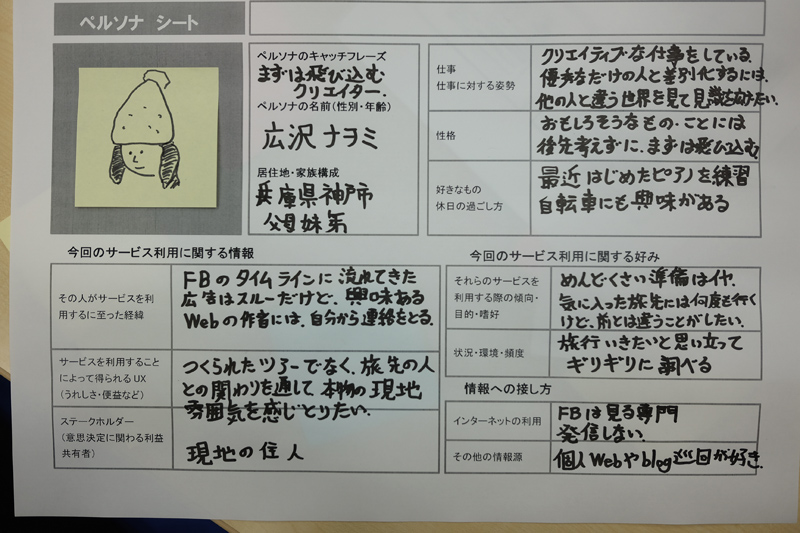 ペルソナ シート
ペルソナのキャッチフレーズ
まずは飛び込む
クリエイター.
ペルソナの名前(性別・年齢)
広沢ナヲミ
居住地・家族構成
兵庫県神戸市
父母妹弟
仕事
仕事に対する姿勢
クリエイティブな仕事をしている.
優秀なだけの人と差別化するには、
他の人と違う世界を見て見識を広げたい.
性格
おもしろそうなもの・ことには
後先考えずに、まずは飛び込む
好きなもの
休日の過ごし方
最近はじめたピアノを練習
自転車にも興味がある
今回のサービス利用に関する情報
その人がサービスを利
用するに至った経緯
FBのタイムラインに流れてきた
広告はスルーだけど、興味ある
Webの作者には、自分から連絡をとる.
サービスを利用すること
によって得られるUX
(うれしさ・便益など)
つくられたツアーでなく、旅先の人
との関わりを通して本物の現地
雰囲気を感じとりたい.
ステークホルダー
(意思決定に関わる利益
共有者)
現地の住人
今回のサービス利用に関する好み
それらのサービスを
利用する際の傾向・
目的・嗜好
めんどくさい準備はイヤ.
気に入った旅先には何度も行く
けど、前とは違うことがしたい.
状況・環境・頻度
旅行いきたいと思い立って
ギリギリに調べる
情報への接し方
インターネットの利用
FBは見る専門
発信しない.
その他の情報源
個人Webやblog巡回が好き.